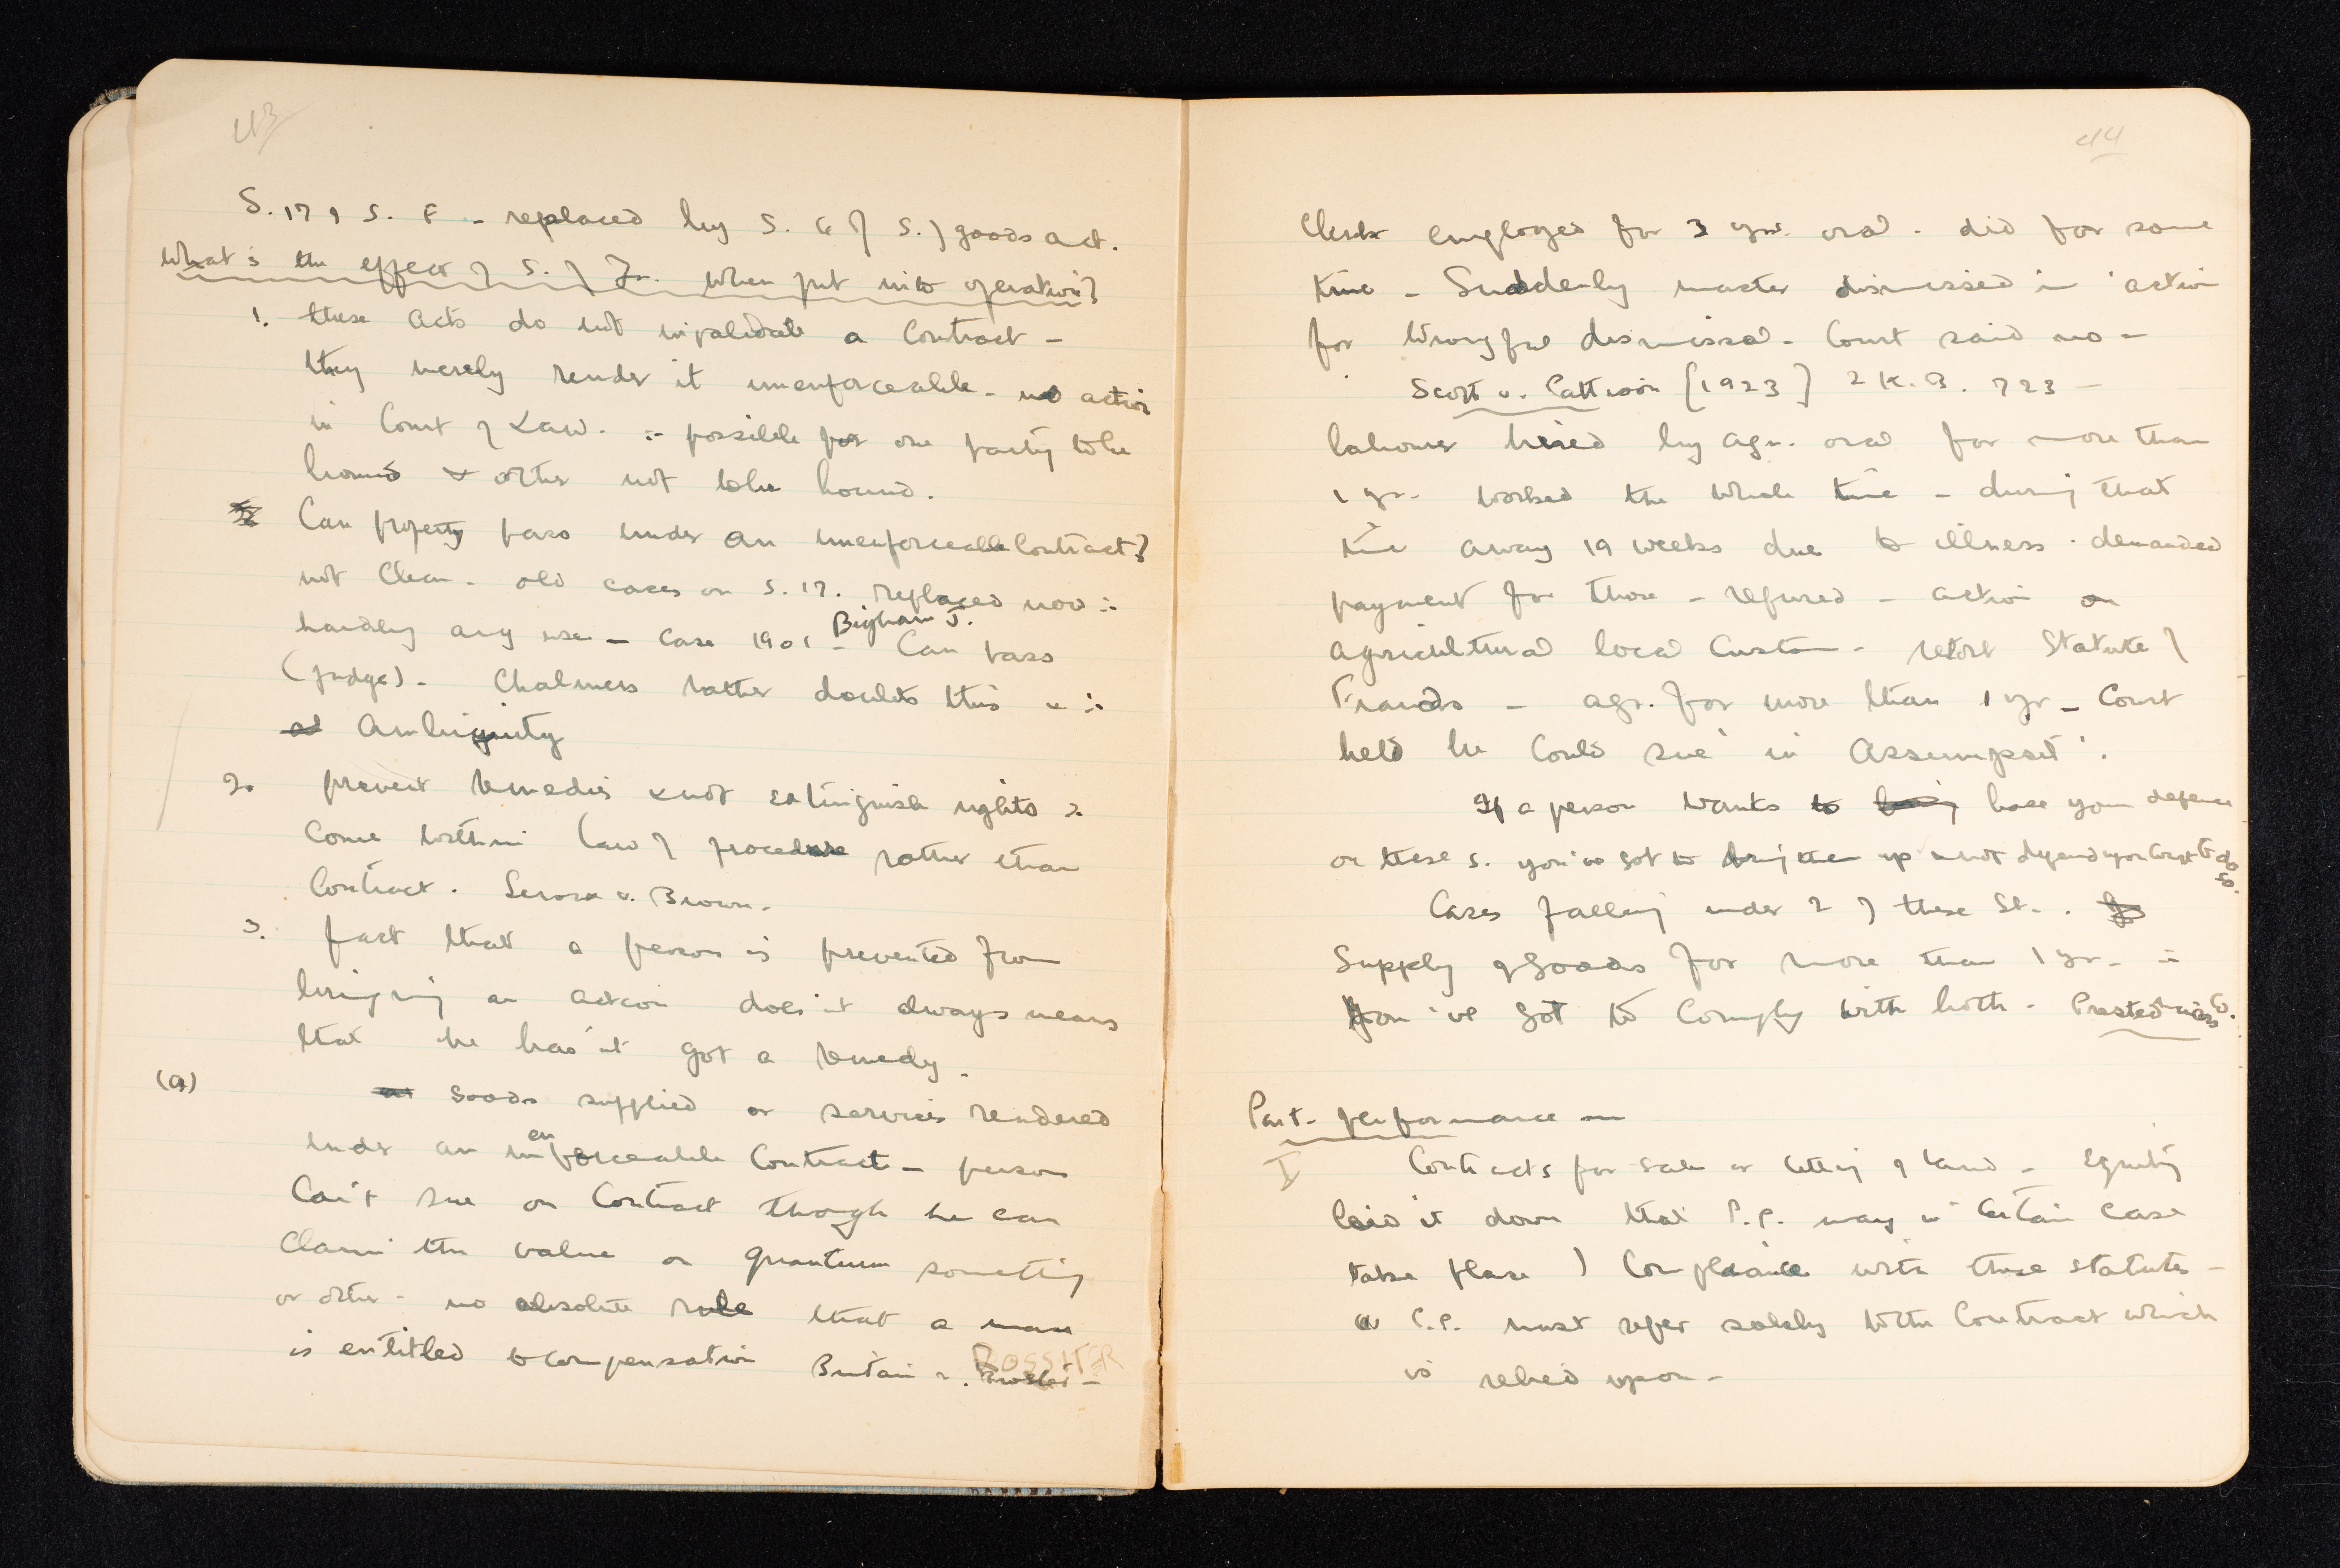 43
S. 17 9 S. F - replaced by S. 4 of S. of goods act.
What is the effect of S. of Fr. when put into operation?
1. these acts do not invalidate a Contract -
they merely render it unenforceable - no action
in Court of Law. ∴ possible for one party to be
bound & other not to be bound.
Can property pass under an unenforceable Contract?
not clear. old cases on S. 17. replaced now ∴
hardly any use - Case 1901 - Bigham J. Can pass
(judge). Chalmers rather doubts this ∴
Ambiguity
2. prevent remedies & not extinguish rights ∴
come within law of procedure rather than
Contract. Leroux v. Brown.
3. fact that a person is prevented from
bringing an action does'nt always means
that he has'nt got a remedy.
(a) Goods supplied or services rendered
under an unenforceable Contract - person
can't sue on Contract though he can
claim the value on quantum something
or other - no absolute rule that a man
is entitled to compensation Britain v. ROSSITER -
44
Clerk employed for 3 yrs. oral. did for some
time - Suddenly master dismissed in action
for wrongful dismissal - Court said no -
Scott v. Pattison [1923] 2 K.B. 723 -
labourer hired by agr. oral for more than
1 yr. worked the whole time - during that
time away 19 weeks due to illness. demanded
payment for those - refused - action on
agricultural local custom - retort Statute of
Frauds - agr. for more than 1 yr - Court
held he could sue in 'Assumpsit'.
If a person wants to base your defence
on these s. you've got to bring them up & not depend upon Court to do so.
Cases falling under 2 of these St.
Supply of Goods for more than 1 yr. ∴
You've got to comply with both - Prested Miners Co.
Part-performance -
I Contracts for sale or letting of land - Equity
laid it down that P.P. may in certain case
take place of compliance with these statutes -
a P.P. must refer solely to the Contract which
is relied upon -